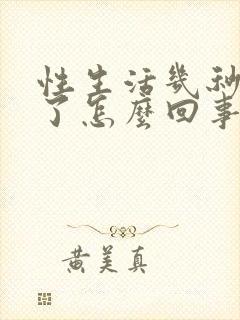 性生活幾秒
了怎麼回事
黃美真